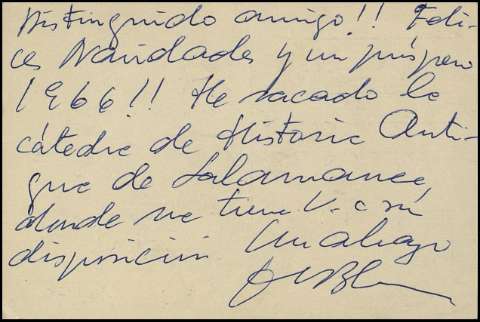 Distinguido amigo!! Feli-
ces Navidades y un próspero
1966!! He sacado la
cátedra de Historia Anti-
gua de Salamanca,
donde me tiene V. a su
disposición Un abrazo